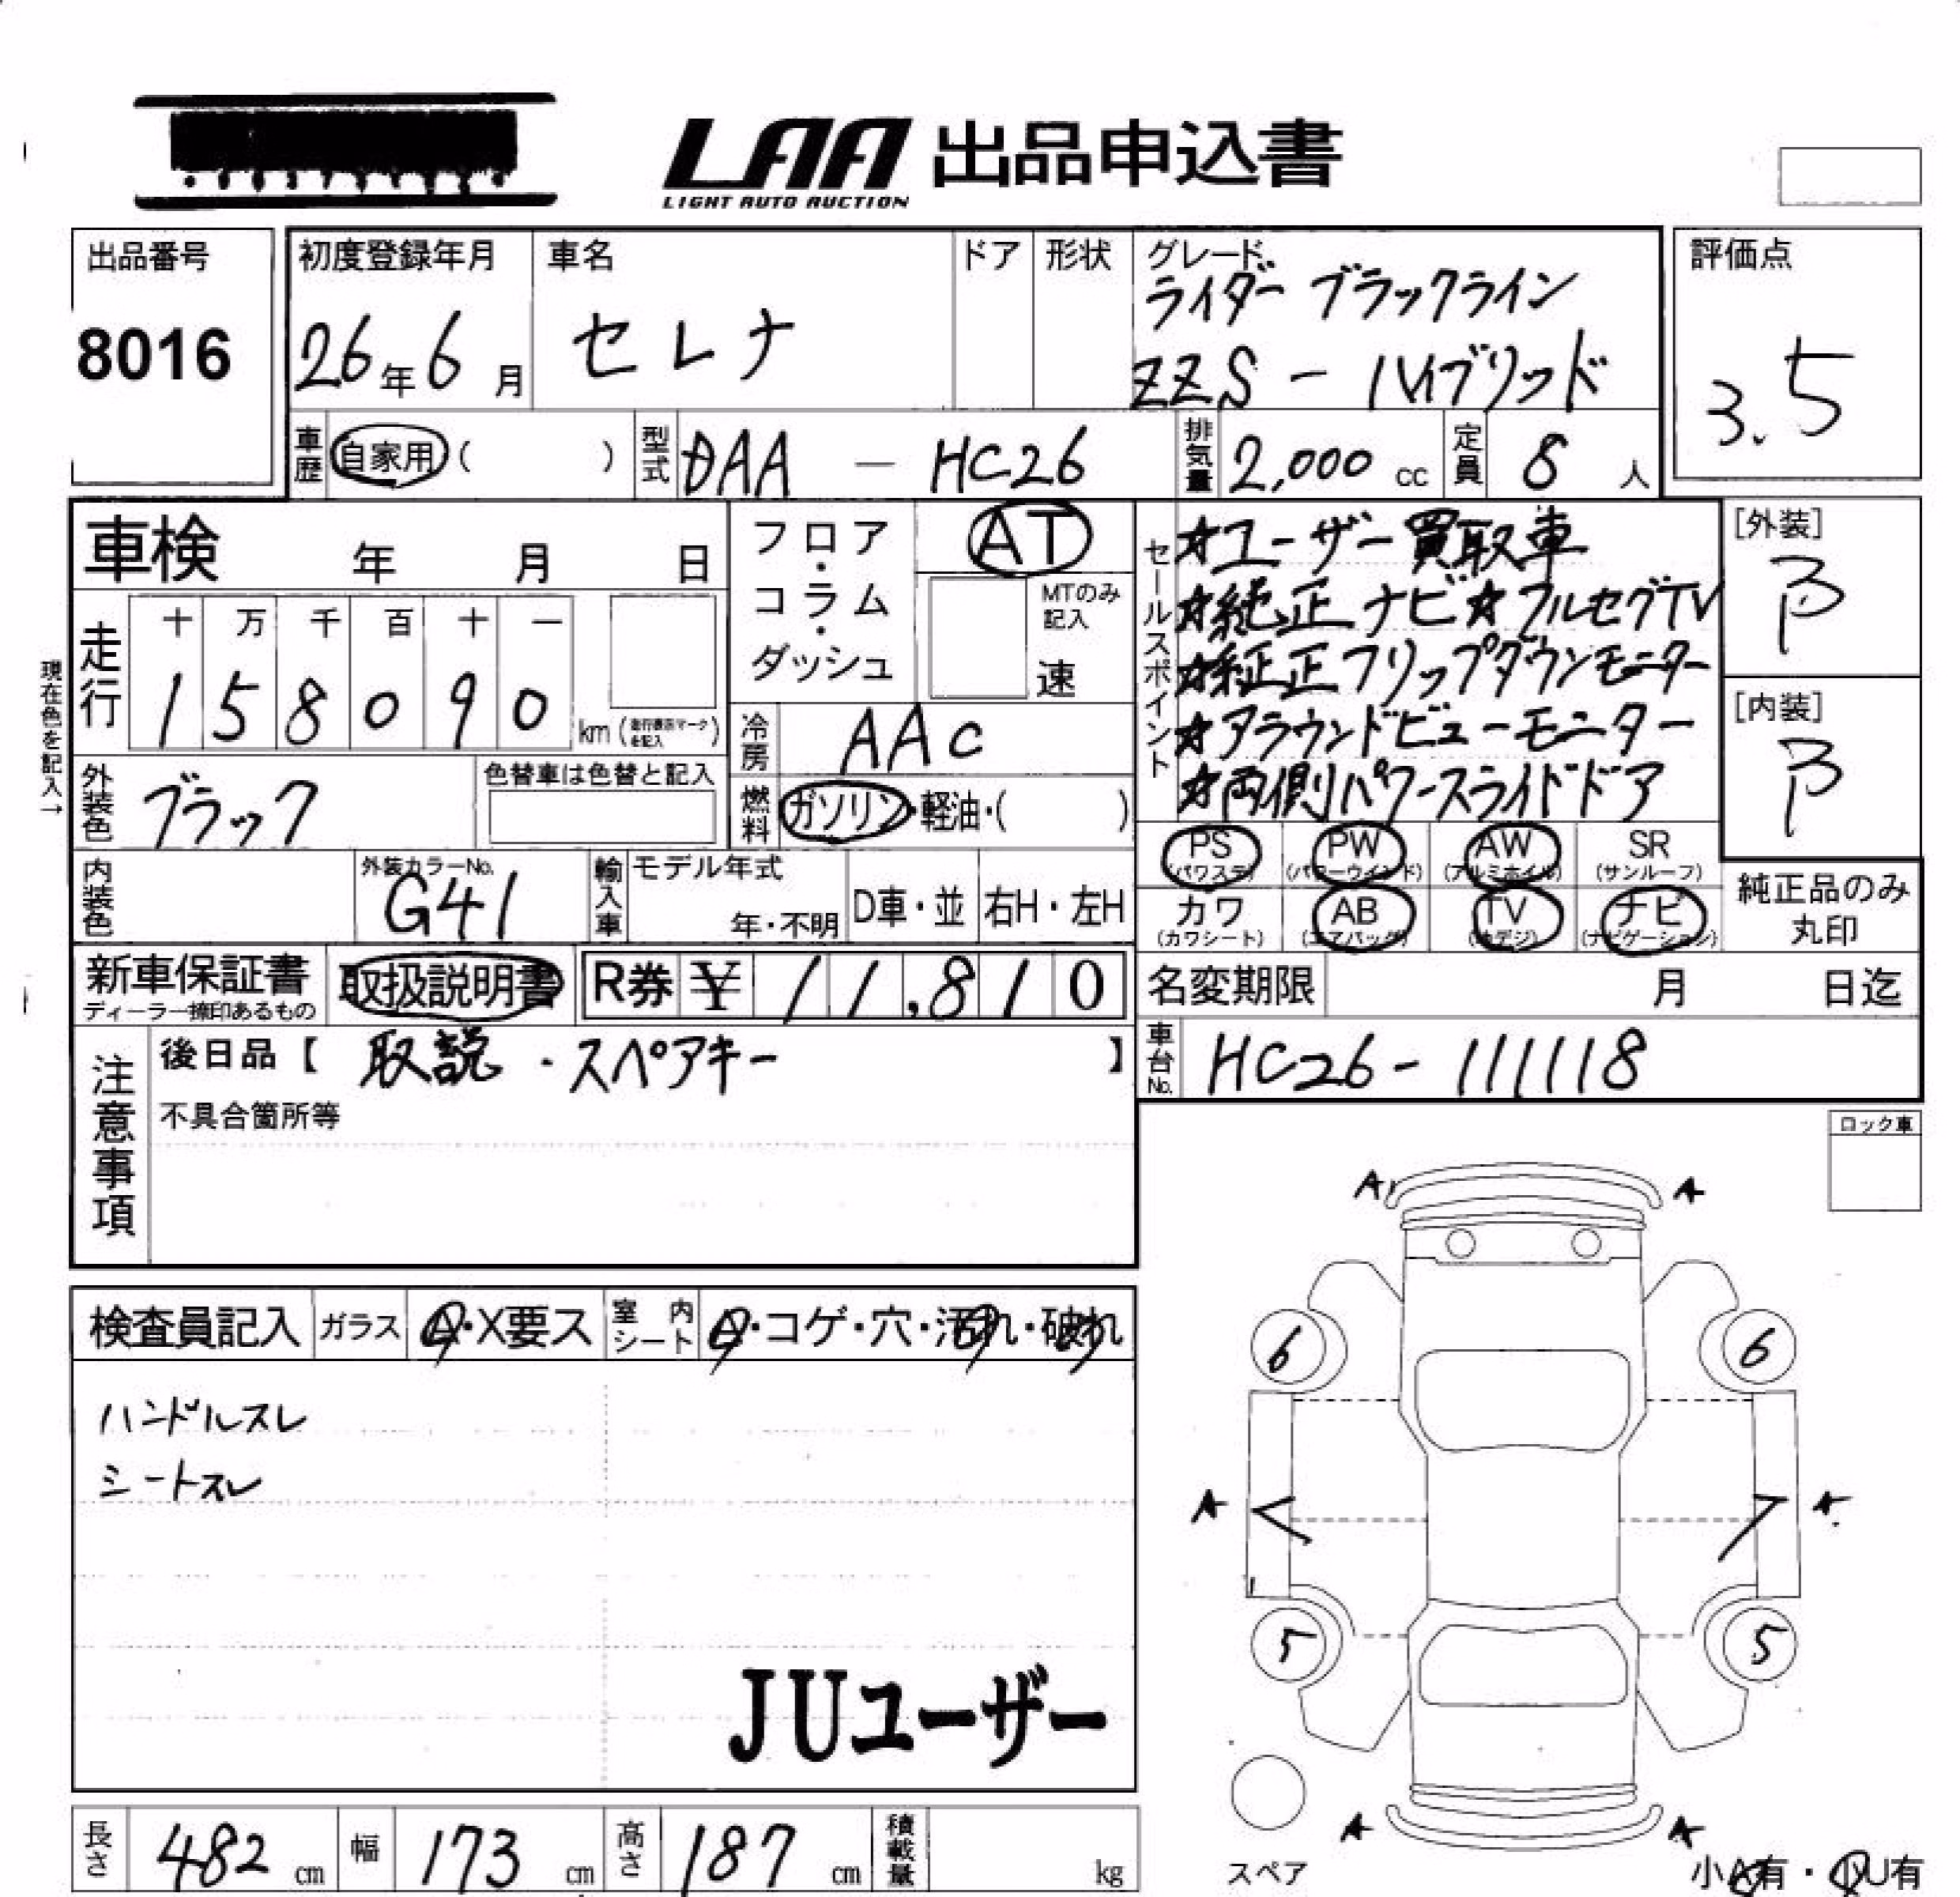 LAA 出品申込書
LIGHT AUTO AUCTION
出品番号
8016
初度登録年月
26年6月
車名
セレナ
ドア
形状
グレード
ライダー ブラックライン
ZZS-ハイブリッド
評価点
3.5
車歴
自家用( )
型式
DAA - HC26
排気量
2,000 cc
定員
8 人
車検 年 月 日
フロア・コラム・ダッシュ
AT
MTのみ記入
速
セールスポイント
☆ユーザー買取車
☆純正ナビ☆フルセグTV
☆純正フリップダウンモニター
☆アラウンドビューモニター
☆両側パワースライドドア
[外装]
B
[内装]
B
現在色を記入→
走行
十 万 千 百 十 一
1 5 8 0 9 0 km (走行表示マークを記入)
冷房
AAC
外装色
ブラック
色替車は色替と記入
燃料
ガソリン・軽油・( )
PS (パワステ)
PW (パワーウインド)
AW (アルミホイル)
SR (サンルーフ)
カワ (カワシート)
AB (エアバッグ)
TV
ナビ (ナビゲーション)
純正品のみ丸印
内装色
外装カラーNo.
G41
輸入車
モデル年式
年・不明
D車・並
右H・左H
新車保証書
ディーラー捺印あるもの
取扱説明書
R券 ¥ 11,810
名変期限 月 日迄
注意事項
後日品【 取説・スペアキー 】
不具合箇所等
車台No.
HC26-111118
ロック車
検査員記入
ガラス
A・X要ス
室内シート
A・コゲ・穴・汚れ・破れ
ハンドルスレ
シートスレ
JUユーザー
A A
6 6
A A
5 5
A A
スペア
小A有・JU有
長さ 482 cm
幅 173 cm
高さ 187 cm
積載量 kg